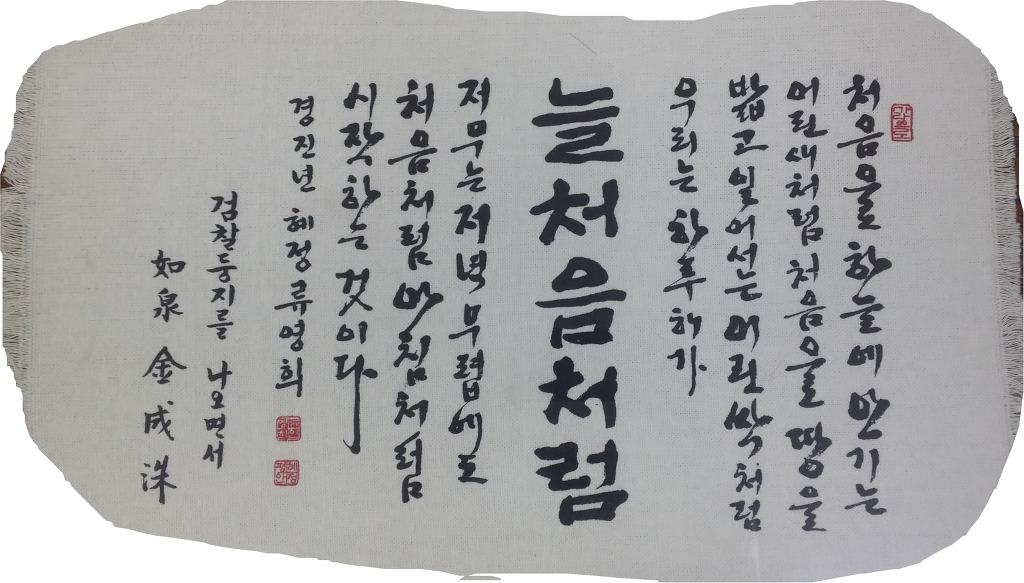 처음을 하늘에 안기는
어린새처럼 처음을 땅을
밟고 일어서는 어린 싹처럼
우리는 하루해가
늘처음처럼
저무는 저녁 무렵에도
처음처럼 아침처럼
시작하는 것이다
경진년 혜정 류영희
검찰둥지를 나오면서
如泉 金成洙